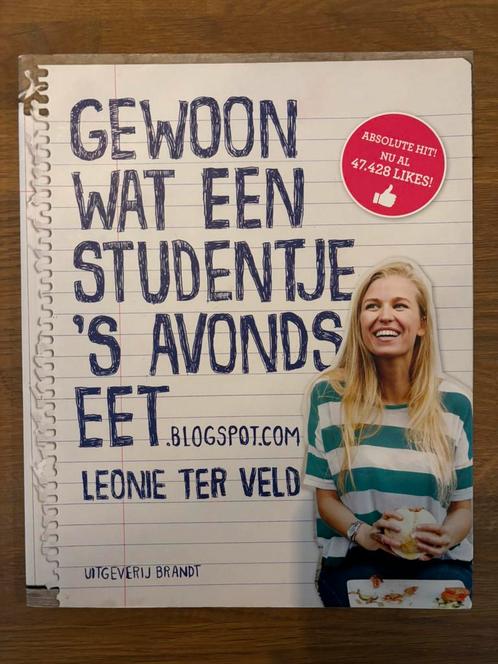 GEWOON
WAT EEN
STUDENTJE
'S AVONDS
EET.BLOGSPOT.COM
LEONIE TER VELD
UITGEVERIJ BRANDT
ABSOLUTE HIT!
NU AL
47.428 LIKES!